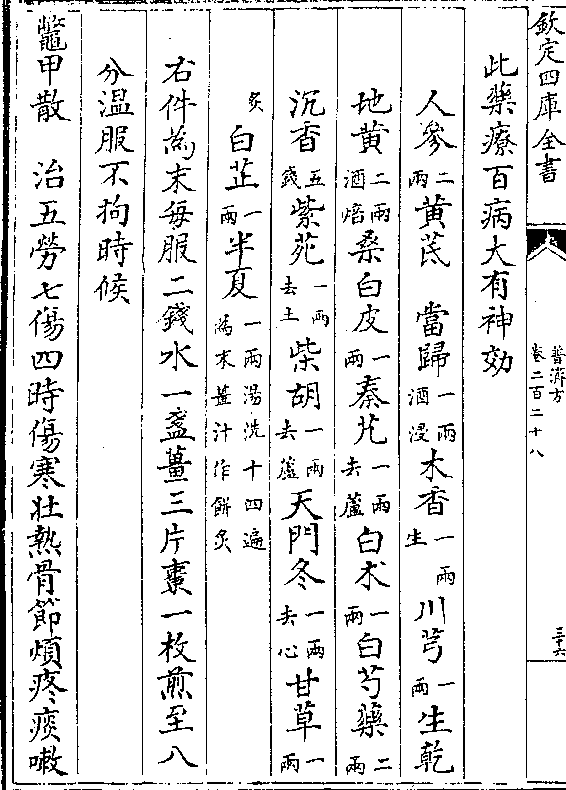 欽定四庫全書
普濟方
卷二百二十八
三十六
此藥療百病大有神効
人參二兩黃芪 當歸一兩酒浸木香一兩生川芎一兩生乾
地黃二兩酒焙桑白皮一兩秦艽一兩去蘆白朮一兩白芍藥二兩
沉香五錢紫苑一兩去土柴胡一兩去蘆天門冬一兩去心甘草一兩
炙白芷一兩半夏一兩湯洗十四遍為末薑汁作餅炙
右件為末每服二錢水一盞薑三片棗一枚煎至八
分温服不拘時候
鼈甲散 治五勞七傷四時傷寒壯熱骨節煩疼痰嗽